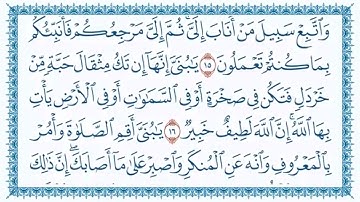 وَاتَّبِعْ سَبِيلَ مَنْ أَنَابَ إِلَيَّ ثُمَّ إِلَيَّ مَرْجِعُكُمْ فَأُنَبِّئُكُم
بِمَا كُنتُمْ تَعْمَلُونَ ١٥ يَابُنَيَّ إِنَّهَا إِن تَكُ مِثْقَالَ حَبَّةٍ مِّنْ
خَرْدَلٍ فَتَكُن فِي صَخْرَةٍ أَوْ فِي السَّمَاوَاتِ أَوْ فِي الْأَرْضِ يَأْتِ
بِهَا اللَّهُ إِنَّ اللَّهَ لَطِيفٌ خَبِيرٌ ١٦ يَابُنَيَّ أَقِمِ الصَّلَاةَ وَأْمُرْ
بِالْمَعْرُوفِ وَانْهَ عَنِ الْمُنكَرِ وَاصْبِرْ عَلَىٰ مَا أَصَابَكَ إِنَّ ذَٰلِكَ